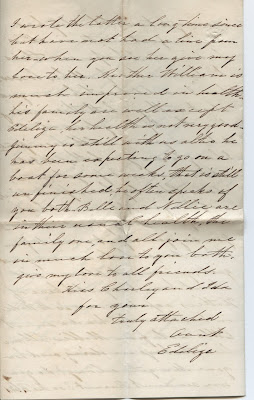 I wrote the latter a long time since
but have not had a line from
her when you see her give my
love to her Brother William is
much improved in health
his family are well except
Edelize her health is not very good
is still with us altho he
has been expecting to go on a
boat for some weeks, that is still
unfinished, he often speaks of
you both Belle and Nellie are
in their usual health, the
family one, and all join me
in much love to you both.
give my love to all friends.
Kiss Charley and Ida
for your
truly attached
Aunt
Edelize